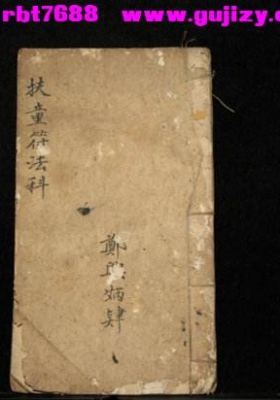 rbt7688 www.gujizy.c
扶童符法科
鄭 炳肆